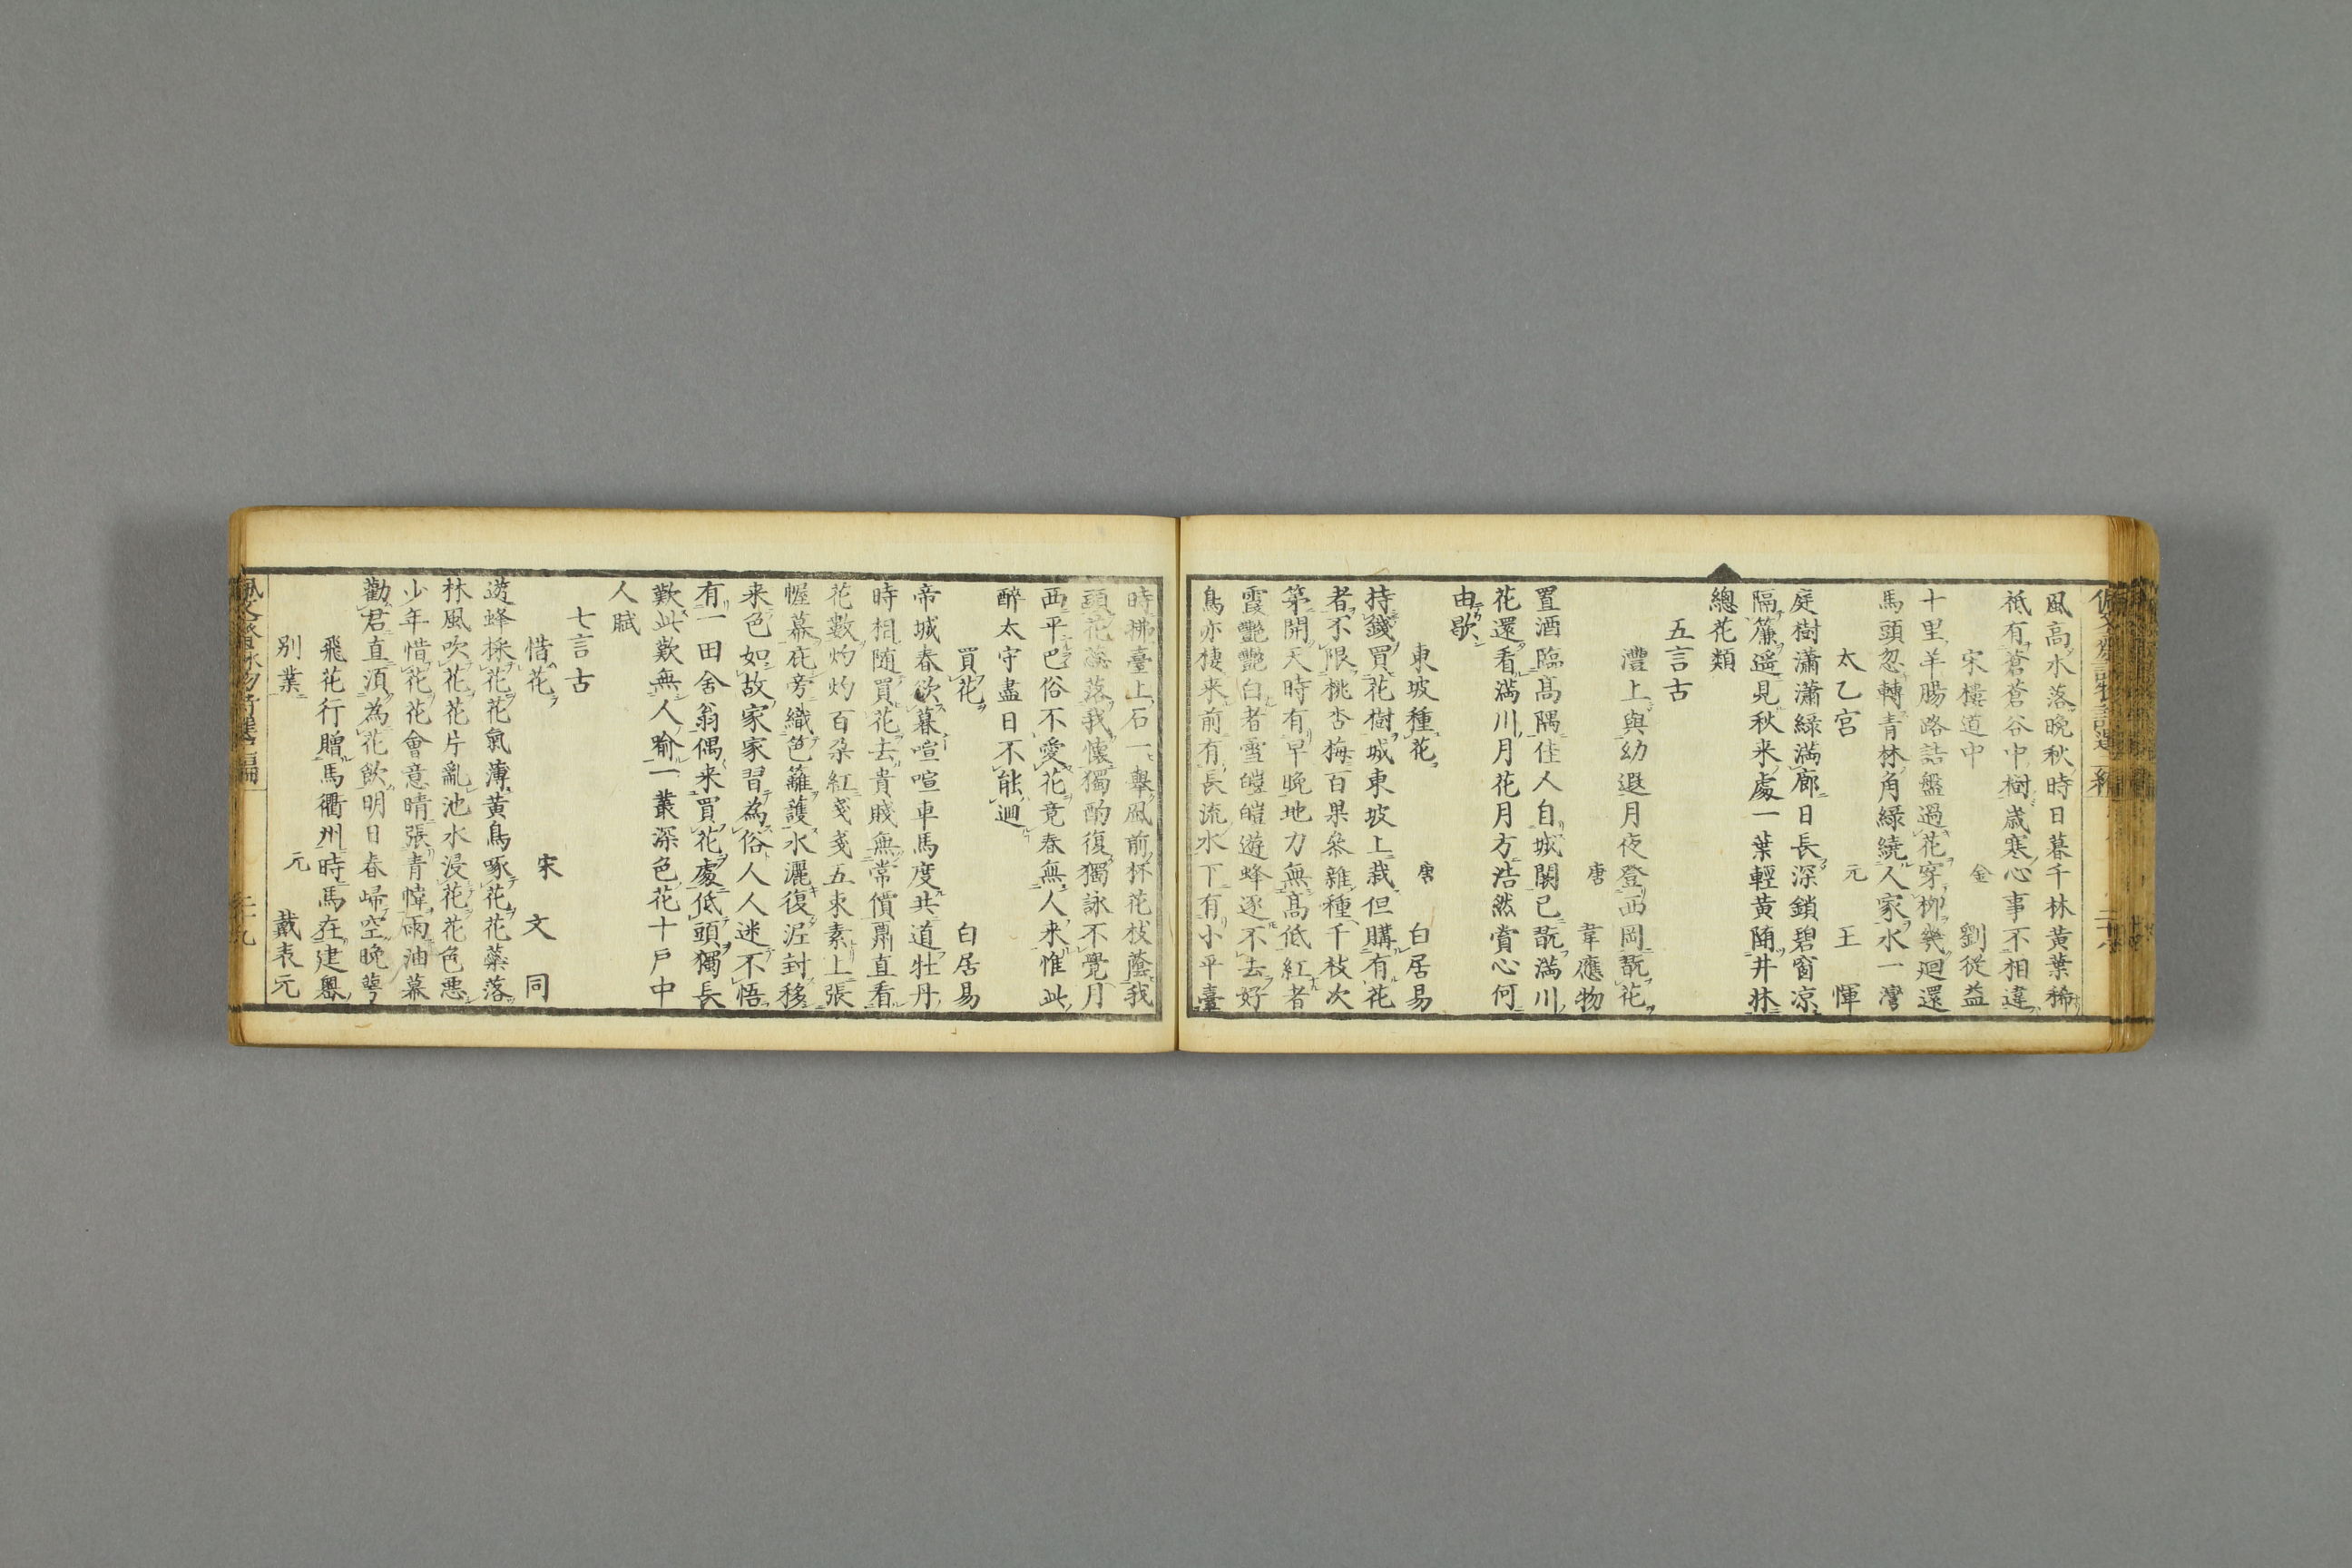 風高水落晚秋時日暮千林黃葉稀
祗有蒼蒼谷中樹歲寒心事不相違
宋樓道中 金 劉從益
十里羊腸路詰盤過花穿柳幾迴還
馬頭忽轉青林角綠繞人家水一灣
太乙宮 元 王 惲
庭樹瀟瀟綠滿廊日長深鎖碧窗凉
隔簾遥見秋来處一葉輕黃隨井牀
總花類
五言古
灃上與幼遐月夜登西岡翫花
唐 韋應物
置酒臨髙隅佳人自城闕已翫滿川
花還看滿川月花月方浩然賞心何
由歇
東坡種花 唐 白居易
持錢買花樹城東坡上栽但購有花
者不限桃杏梅百果叅雜種千枝次
第開天時有早晚地力無髙低紅者
霞艷艷白者雪皚皚遊蜂逐不去好
鳥亦棲来前有長流水下有小平臺
時拂臺上石一舉風前杯花枝蔭我
頭花蕊落我懷獨酌復獨詠不覺月
西平巴俗不愛花竟春無人来惟此
醉太守盡日不能迴
買花 白居易
帝城春欲暮喧喧車馬度共道牡丹
時相随買花去貴賤無常價酬直看
花數灼灼百朶紅戔戔五束素上張
幄幕庇旁織笆籬護水灑復泥封移
来色如故家家習為俗人人迷不悟
有一田舍翁偶来買花處低頭獨長
歎此歎無人喻一叢深色花十戸中
人賦
七言古
惜花 宋 文 同
遊蜂採花花氣薄黃鳥啄花花蘂落
林風吹花花片亂池水浸花花色悪
少年惜花花會意晴張青幃雨油幕
勸君直湏為花飲明日春歸空晚萼
飛花行贈馬衢州時馬在建粵
别業 元 戴表元